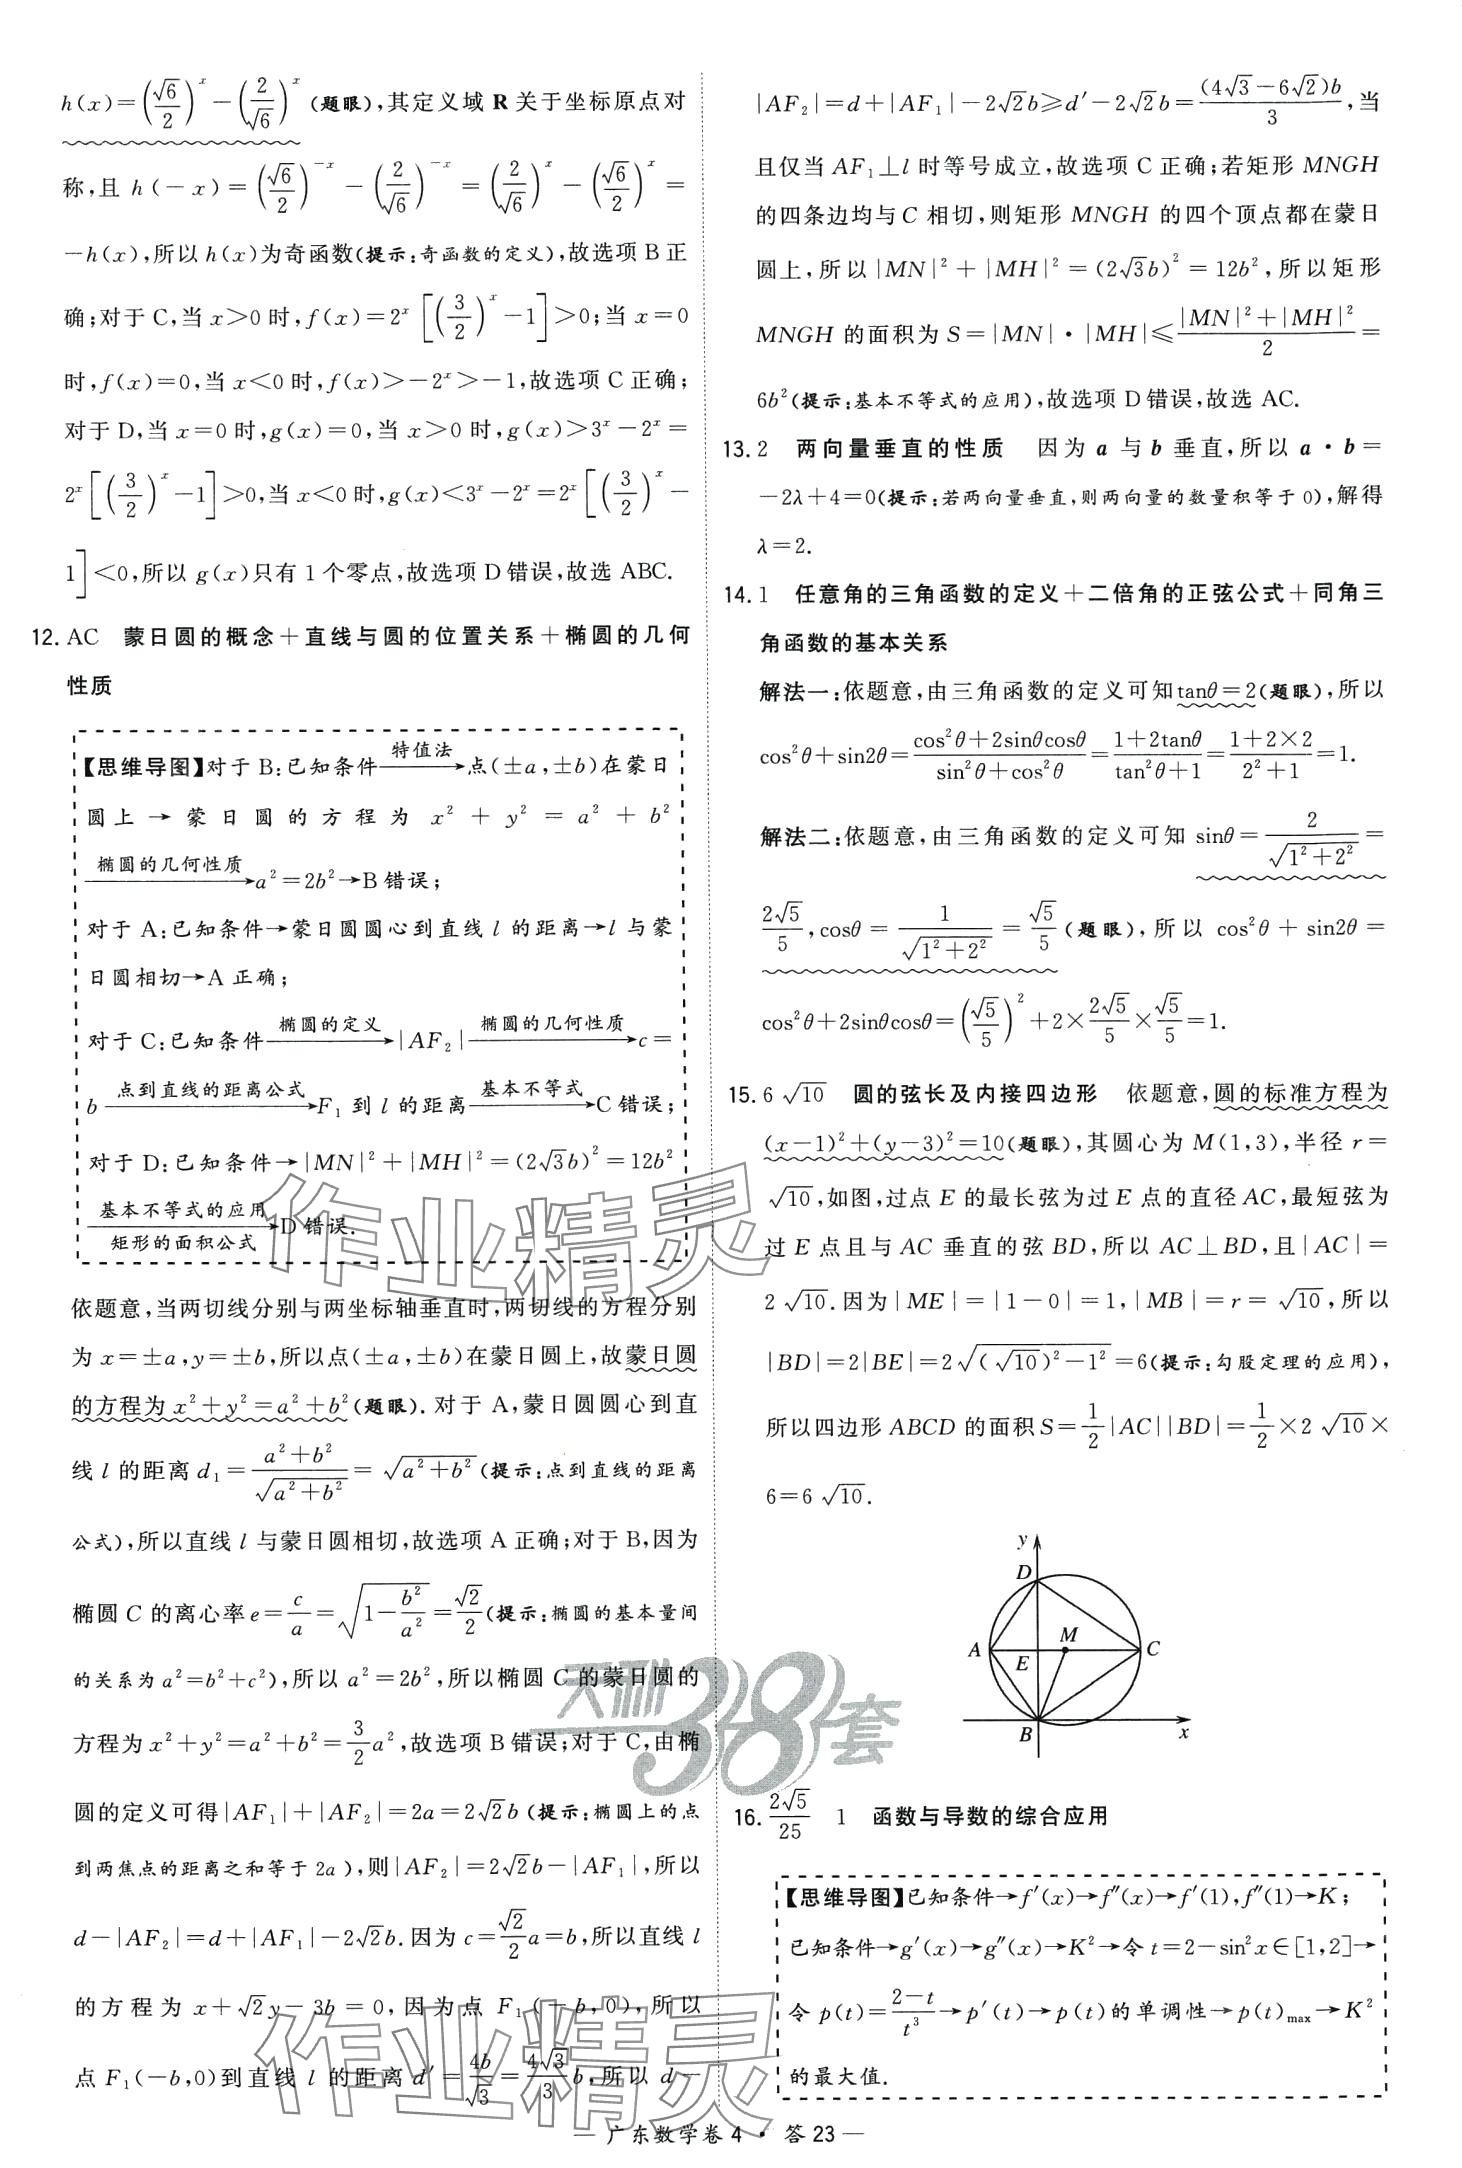 h(x)=(√6/2)^x−(2/√6)^x(题眼),其定义域 R 关于坐标原点对
称,且 h(−x)=(√6/2)^−x−(2/√6)^−x=(2/√6)^x−(√6/2)^x=
−h(x),所以 h(x)为奇函数(提示:奇函数的定义),故选项 B 正
确;对于 C,当 x>0 时,f(x)=2^x[(3/2)^x−1]>0;当 x=0
时,f(x)=0,当 x<0 时,f(x)>−2^x>−1,故选项 C 正确;
对于 D,当 x=0 时,g(x)=0,当 x>0 时,g(x)>3^x−2^x=
2^x[(3/2)^x−1]>0,当 x<0 时,g(x)<3^x−2^x=2^x[(3/2)^x−
1]<0,所以 g(x)只有 1 个零点,故选项 D 错误,故选 ABC.
12. AC 蒙日圆的概念+直线与圆的位置关系+椭圆的几何
性质
【思维导图】对于 B:已知条件 特值法→点(±a,±b)在蒙日
圆上→蒙日圆的方程为 x²+y²=a²+b²
椭圆的几何性质→a²=2b²→B 错误;
对于 A:已知条件→蒙日圆圆心到直线 l 的距离→l 与蒙
日圆相切→A 正确;
对于 C:已知条件 椭圆的定义→|AF₂| 椭圆的几何性质→c=
b 点到直线的距离公式→F₁ 到 l 的距离 基本不等式→C 错误;
对于 D:已知条件→|MN|²+|MH|²=(2√3b)²=12b²
基本不等式的应用 矩形的面积公式→D 错误.
依题意,当两切线分别与两坐标轴垂直时,两切线的方程分别
为 x=±a,y=±b,所以点(±a,±b)在蒙日圆上,故蒙日圆
的方程为 x²+y²=a²+b²(题眼).对于 A,蒙日圆圆心到直
线 l 的距离 d₁=(a²+b²)/√(a²+b²)=√(a²+b²)(提示:点到直线的距离
公式),所以直线 l 与蒙日圆相切,故选项 A 正确;对于 B,因为
椭圆 C 的离心率 e=c/a=√(1−b²/a²)=√2/2(提示:椭圆的基本量间
的关系为 a²=b²+c²),所以 a²=2b²,所以椭圆 C 的蒙日圆的
方程为 x²+y²=a²+b²=3/2a²,故选项 B 错误;对于 C,由椭
圆的定义可得|AF₁|+|AF₂|=2a=2√2b(提示:椭圆上的点
到两焦点的距离之和等于 2a),则|AF₂|=2√2b−|AF₁|,所以
d−|AF₂|=d+|AF₁|−2√2b.因为 c=√2/2a=b,所以直线 l
的方程为 x+√2y−3b=0,因为点 F₁(−b,0),所以
点 F₁(−b,0)到直线 l 的距离 d′=4b/√3=4√3/3b,所以 d−
|AF₂|=d+|AF₁|−2√2b≥d′−2√2b=(4√3−6√2)b/3,当
且仅当 AF₁⊥l 时等号成立,故选项 C 正确;若矩形 MNGH
的四条边均与 C 相切,则矩形 MNGH 的四个顶点都在蒙日
圆上,所以|MN|²+|MH|²=(2√3b)²=12b²,所以矩形
MNGH 的面积为 S=|MN|·|MH|≤(|MN|²+|MH|²)/2=
6b²(提示:基本不等式的应用),故选项 D 错误,故选 AC.
13. 2 两向量垂直的性质 因为 a 与 b 垂直,所以 a·b=
−2λ+4=0(提示:若两向量垂直,则两向量的数量积等于 0),解得
λ=2.
14. 1 任意角的三角函数的定义+二倍角的正弦公式+同角三
角函数的基本关系
解法一:依题意,由三角函数的定义可知tanθ=2(题眼),所以
cos²θ+sin2θ=(cos²θ+2sinθcosθ)/(sin²θ+cos²θ)=(1+2tanθ)/(tan²θ+1)=(1+2×2)/(2²+1)=1.
解法二:依题意,由三角函数的定义可知 sinθ=2/√(1²+2²)=
2√5/5,cosθ=1/√(1²+2²)=√5/5(题眼),所以 cos²θ+sin2θ=
cos²θ+2sinθcosθ=(√5/5)²+2×2√5/5×√5/5=1.
15. 6√10 圆的弦长及内接四边形 依题意,圆的标准方程为
(x−1)²+(y−3)²=10(题眼),其圆心为 M(1,3),半径 r=
√10,如图,过点 E 的最长弦为过 E 点的直径 AC,最短弦为
过 E 点且与 AC 垂直的弦 BD,所以 AC⊥BD,且|AC|=
2√10.因为|ME|=|1−0|=1,|MB|=r=√10,所以
|BD|=2|BE|=2√((√10)²−1²)=6(提示:勾股定理的应用),
所以四边形 ABCD 的面积 S=1/2|AC||BD|=1/2×2√10×
6=6√10.
y
D
A
E
M
C
B
x
16. 2√5/25 1 函数与导数的综合应用
【思维导图】已知条件→f′(x)→f″(x)→f′(1),f″(1)→K;
已知条件→g′(x)→g″(x)→K²→令 t=2−sin²x∈[1,2]→
令 p(t)=(2−t)/t³→p′(t)→p(t)的单调性→p(t)max→K²
的最大值.
— 广东数学卷 4 · 答 23 —
作业精灵
天利38套
作业精灵